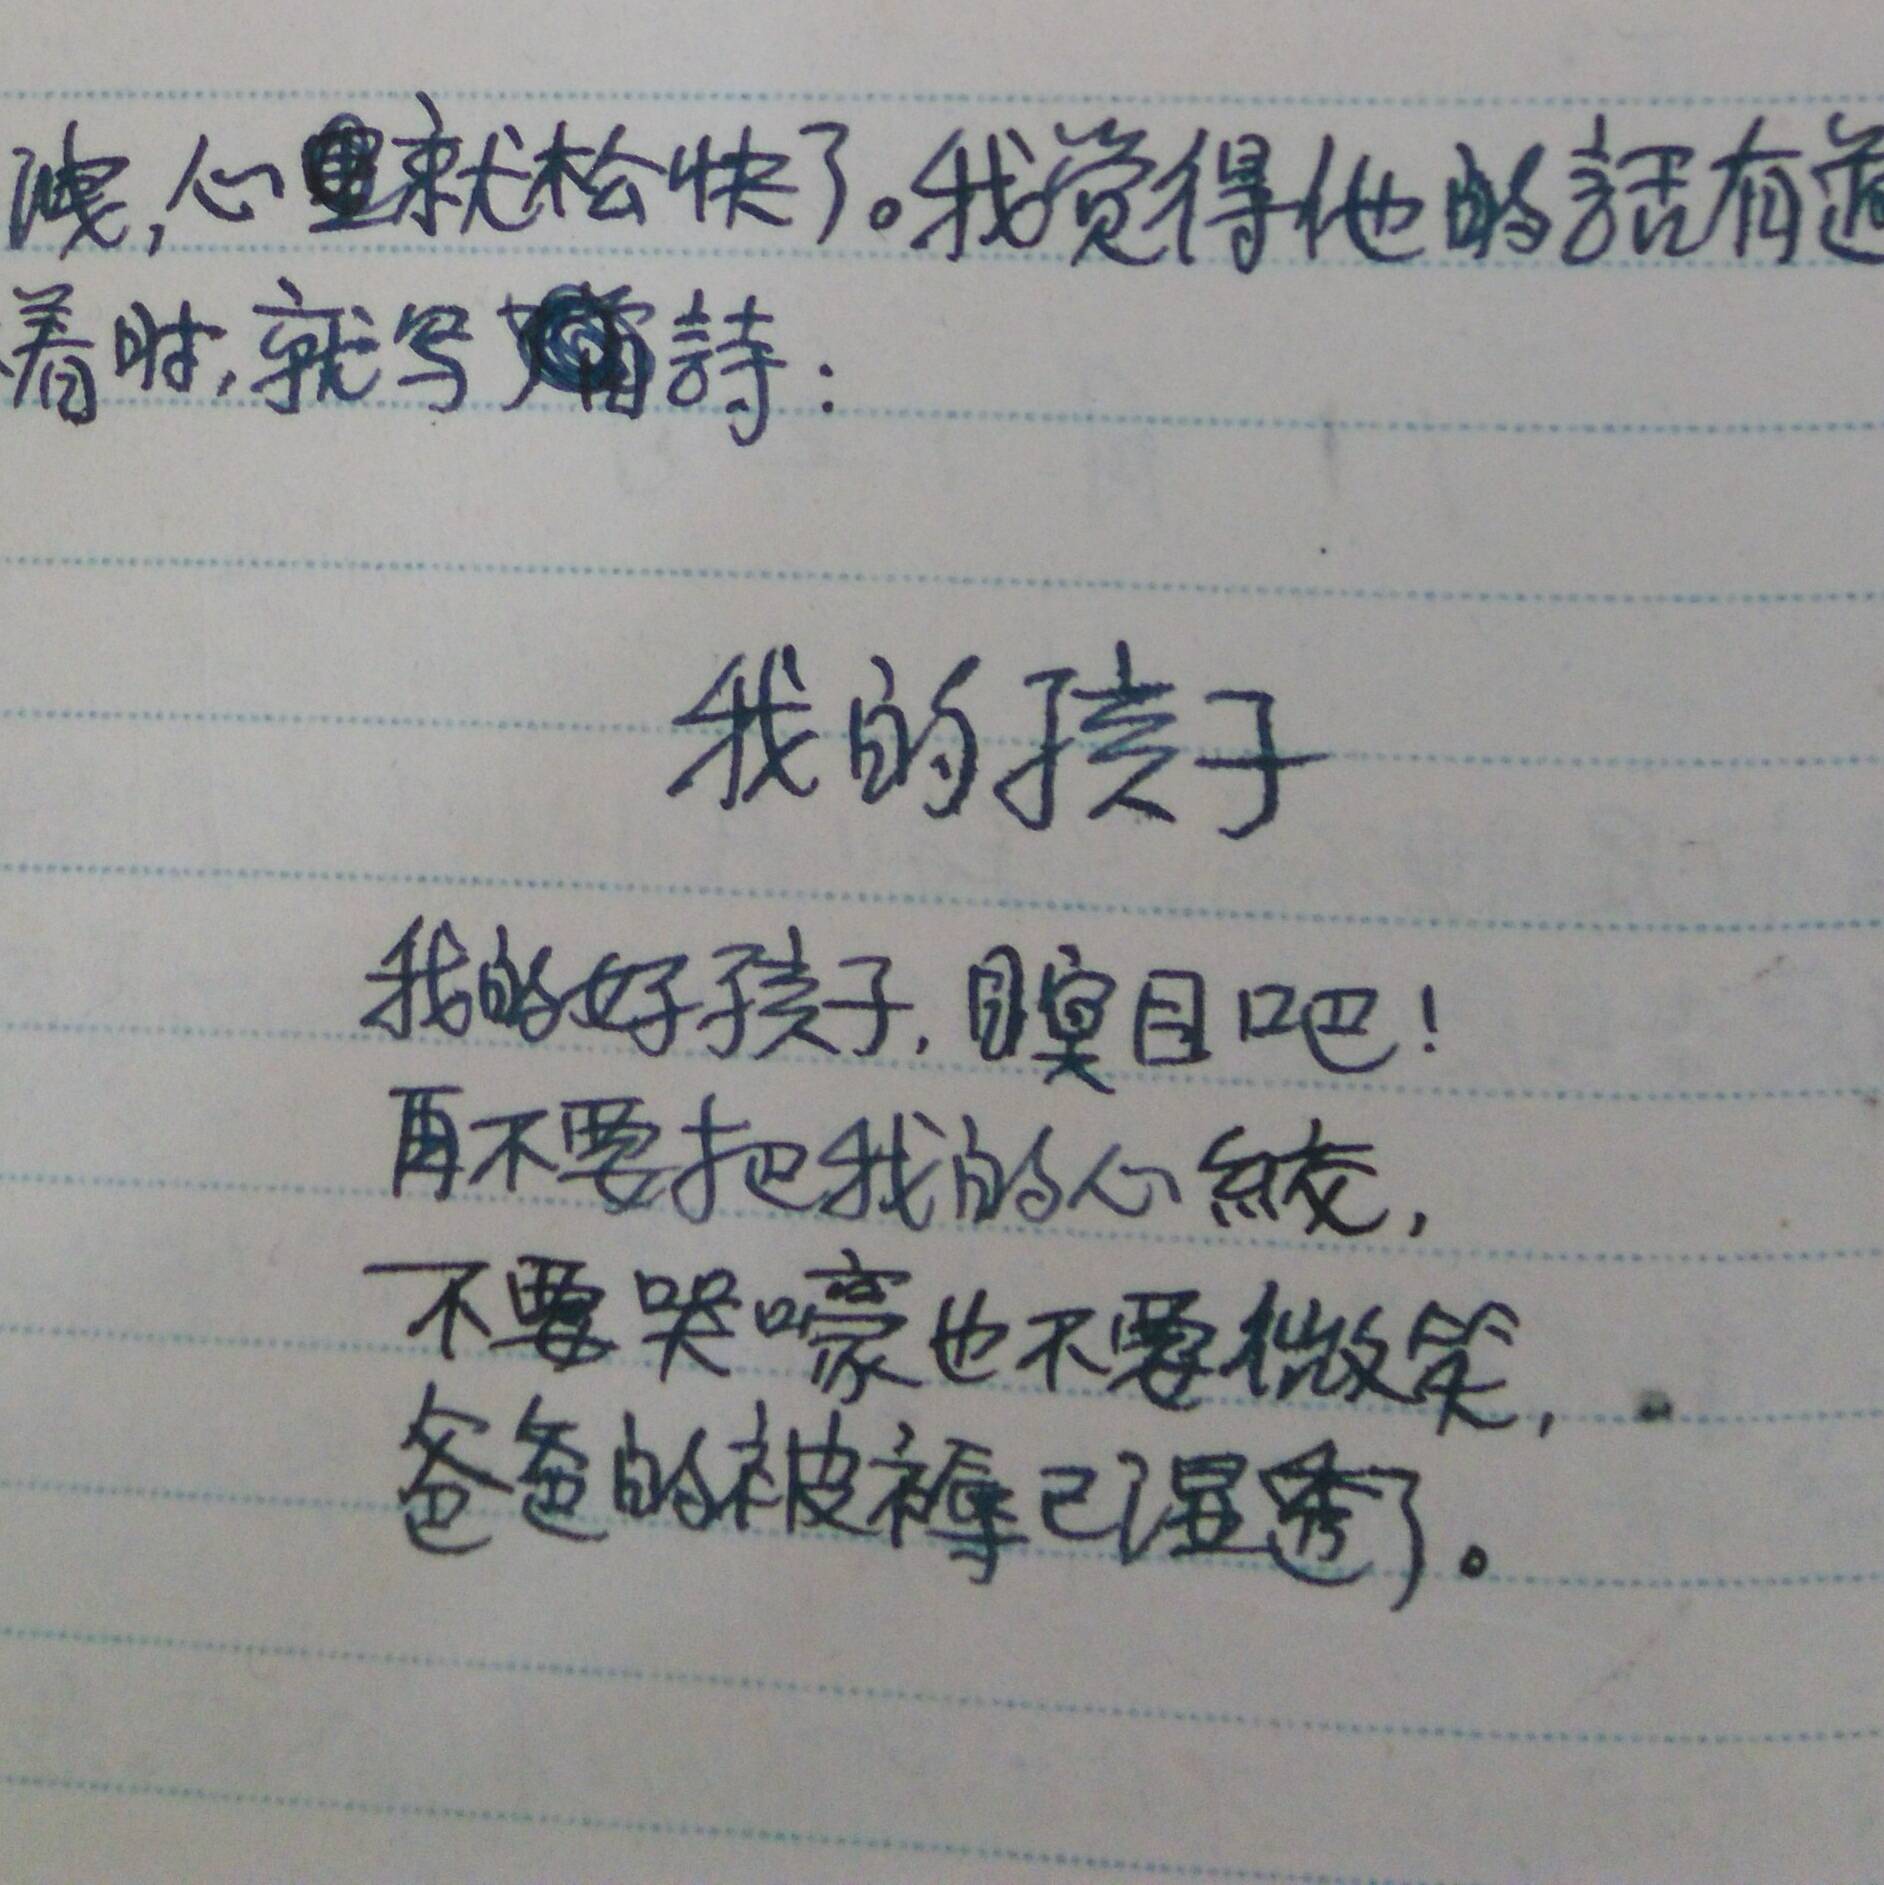 洩,心里就松快了。我觉得他的話有道
着时,就写了首詩:
我的孩子
我的好孩子,瞑目吧!
再不要把我的心絞,
不要哭嚎也不要微笑,
爸爸的被褥已湿透了。